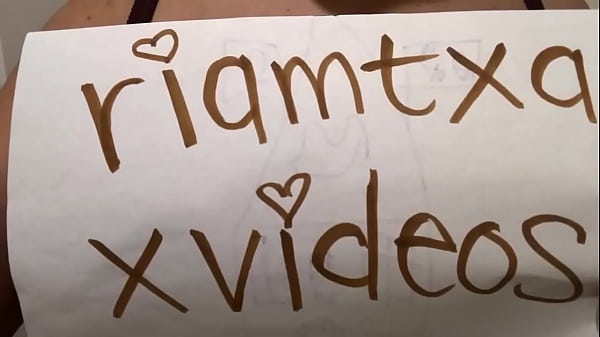 riamtxa
xvideos